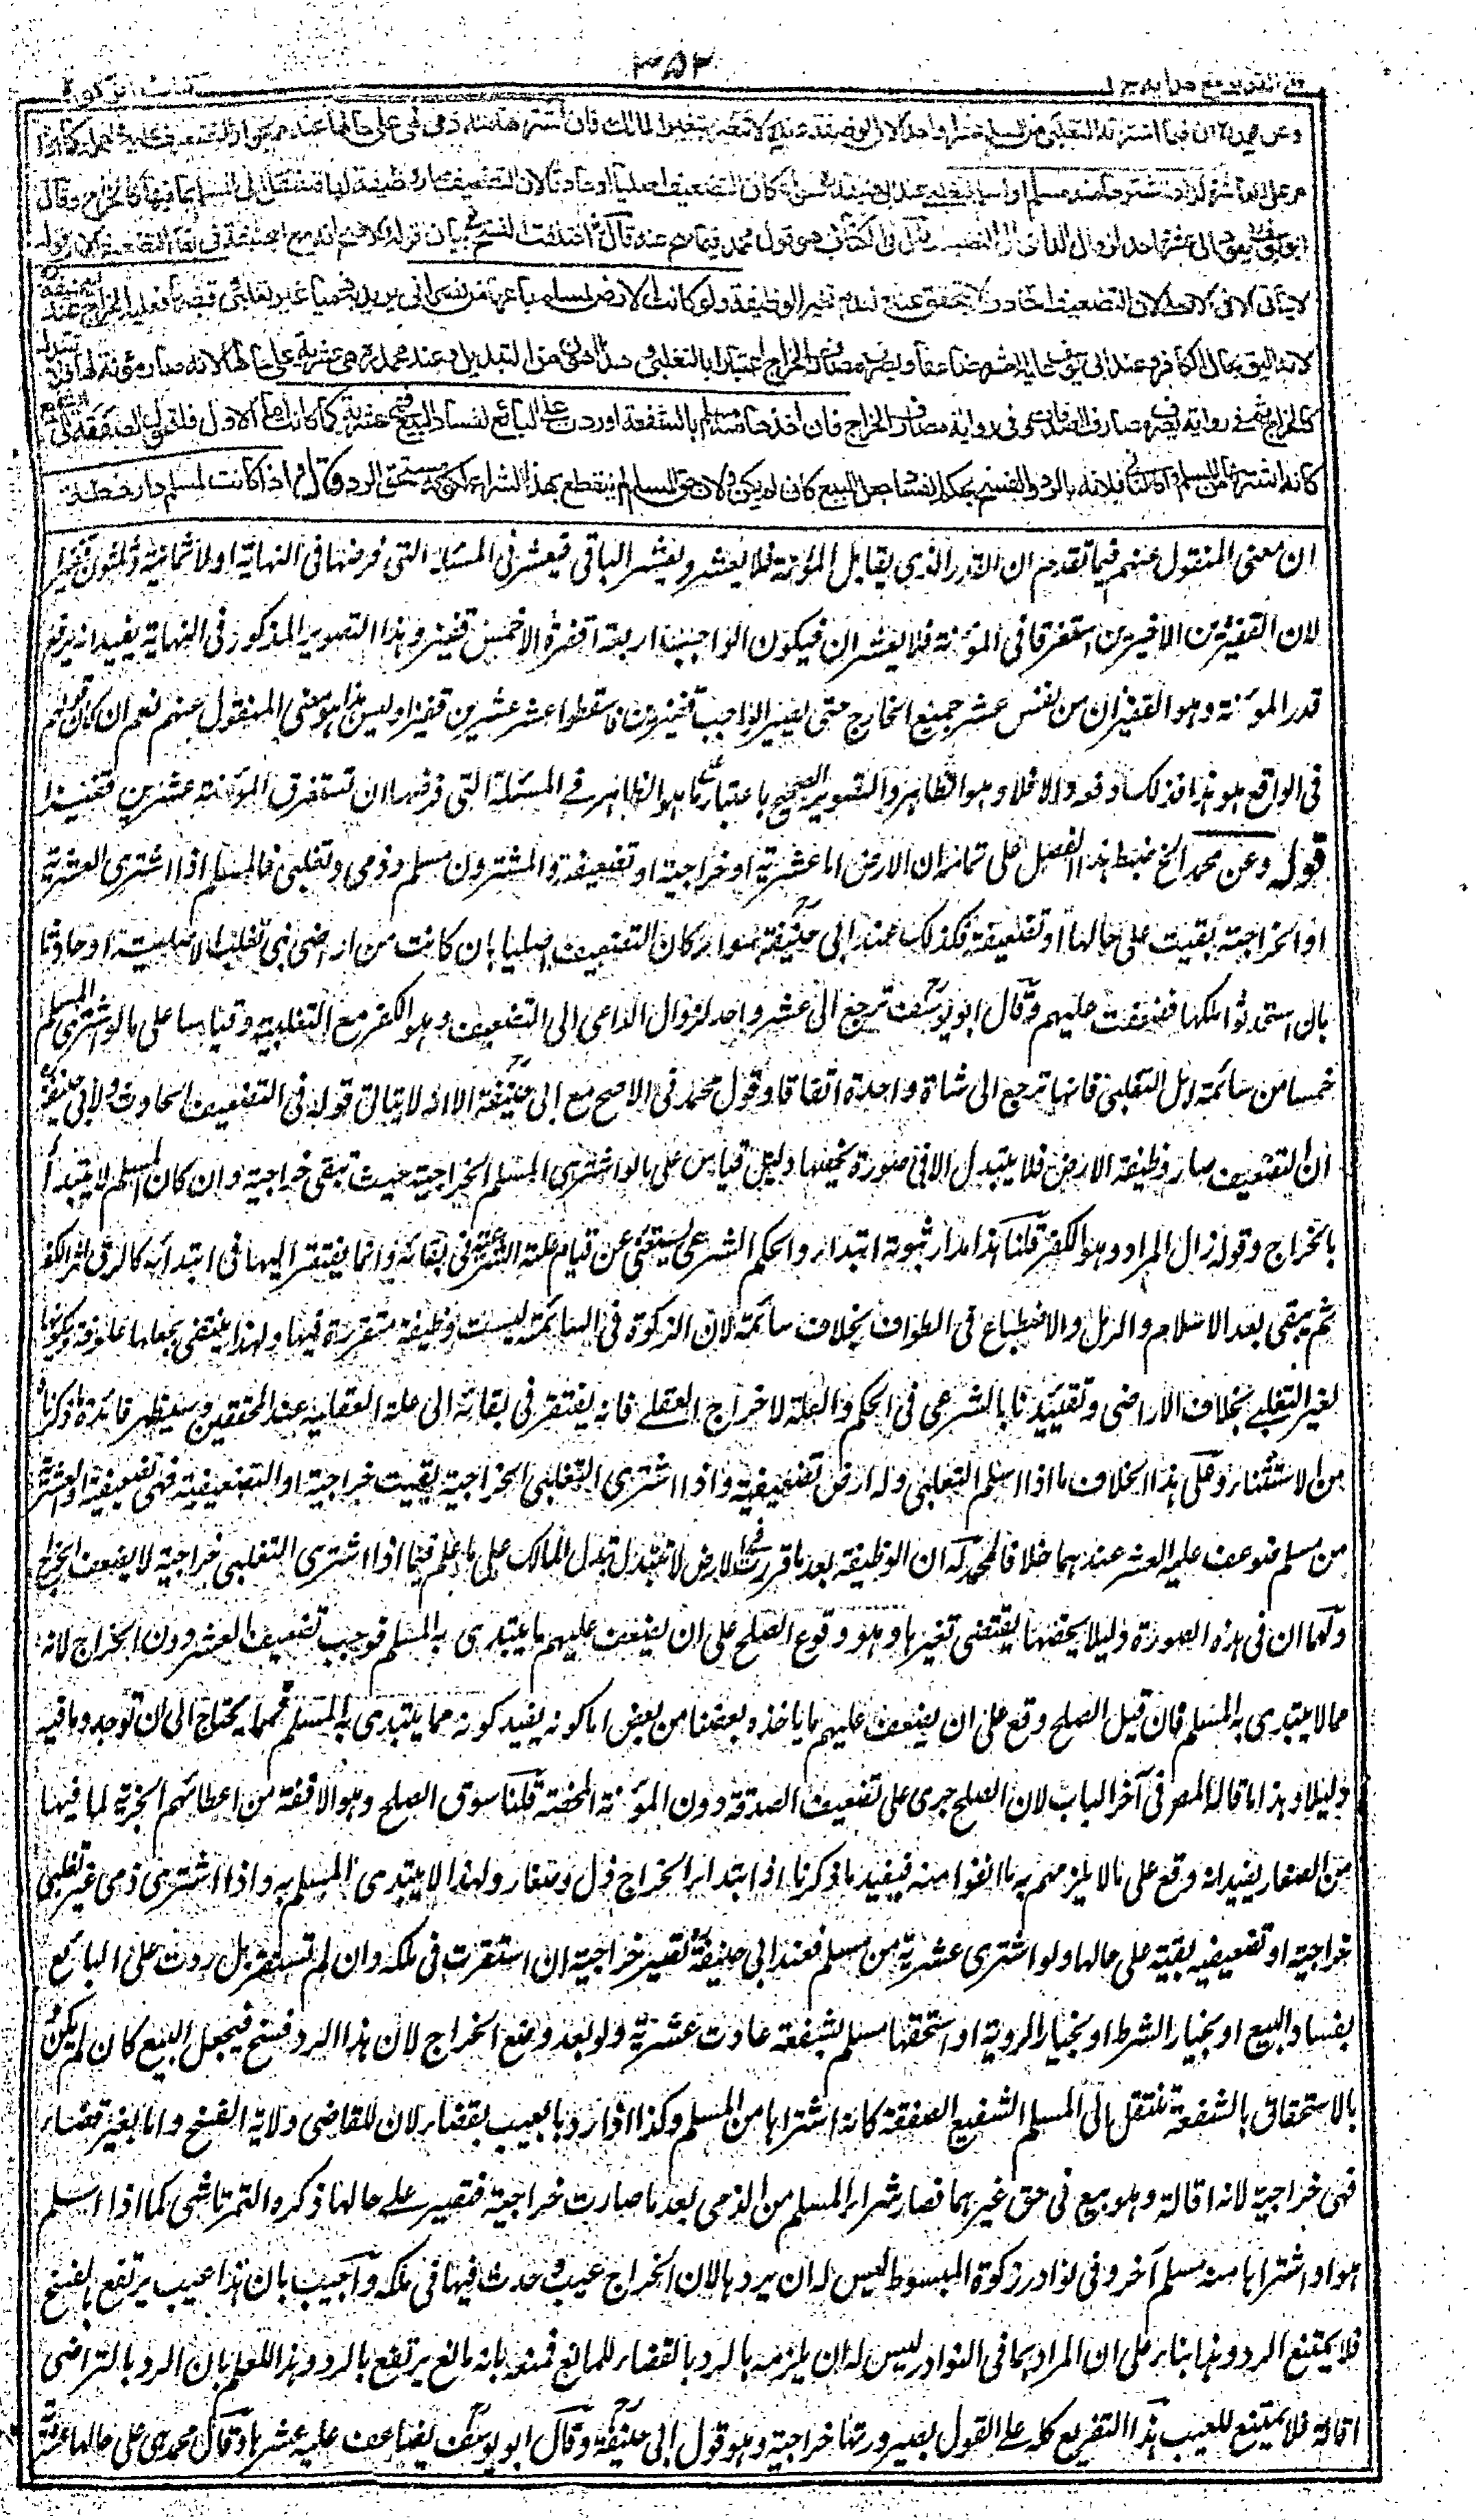 ٣٥٢
فتح القدير مع هدايه ج ١
كتاب الزكوة
وعن محمد ان فيما اشتراه التغلبي من المسلم عشرا واحدا لان الوظيفة عنده لا تتغير بتغير المالك فان اشتراها منه ذمي فهي على حالها عندهم لجواز التضعيف عليه في الجملة كما اذا
مر على العاشر وكذا اذا اشتراها منه مسلم او اسلم التغلبي عند ابي حنيفة سواء كان التضعيف اصليا او حادثا لان التضعيف صار وظيفة لها فتنتقل الى المسلم بما فيها كالخراج وقال
ابو يوسف يعود الى عشر واحد لزوال الداعي الى التضعيف قال في الكتاب وهو قول محمد فيما صح عنه قال اختلفت النسخ في بيان قوله والاصح انه مع ابي حنيفة في بقاء التضعيف الا ان قوله
لا يتأتى الا في الاصلي لان التضعيف الحادث لا يتحقق عنده لعدم تغير الوظيفة ولو كانت الارض لمسلم باعها من نصراني يريد به ذميا غير تغلبي وقبضها فعليه الخراج عند ابي حنيفة
لانه اليق بحال الكافر وعند ابي يوسف عليه العشر مضاعفا ويصرف مصارف الخراج اعتبارا بالتغلبي وهذا اهون من التبديل وعند محمد هي عشرية على حالها لانه صار مؤنة لها فلا يتبدل
كالخراج ثم في رواية يصرف مصارف الصدقات وفي رواية مصارف الخراج فان اخذها منه مسلم بالشفعة او ردت على البائع لفساد البيع فهي عشرية كما كانت اما الاول فلتحول الصفقة الى الشفيع
كانه اشتراها من المسلم واما الثاني فلانه بالرد والفسخ بحكم الفساد جعل البيع كان لم يكن ولان حق المسلم لم ينقطع بهذا الشراء لكونه مستحق الرد وقال واذا كانت لمسلم دار خطة
ان معنى المنقول عنهم فيما تقدم ان القدر الذي يقابل المؤنة لا يعشر ويعشر الباقي فيعشر في المسئلة التي فرضها في النهاية اولا ثمانية وثلثون قفيزا
لان القفيزين الاخيرين استغرقا في المؤنة فلا يعشران فيكون الواجب اربعة اقفزة الا خمس قفيز وهذا التصوير المذكور في النهاية يفيد انه يرفع
قدر المؤنة وهو القفيزان من نفس عشر جميع الخارج حتى يصير الواجب قفيزين فاسقطوا عشر عشرين قفيزا وليس هذا هو معنى المنقول عنهم نعم ان كان قولهم
في الواقع هو هذا فذلك والا فلا وهو الظاهر والتصوير الصحيح باعتبار ما هو الظاهر في المسئلة التي فرضها ان تستغرق المؤنة عشرين قفيزا
قوله وعن محمد الخ ضبط هذا الفصل على تمامه ان الارض اما عشرية او خراجية او تضعيفية والمشترون مسلم وذمي وتغلبي فالمسلم اذا اشترى العشرية
او الخراجية بقيت على حالها او تضعيفية فكذلك عند ابي حنيفة سواء كان التضعيف اصليا بان كانت من اراضي بني تغلب الاصلية او حادثا
بان استحدثوا ملكها فضعفت عليهم وقال ابو يوسف ترجع الى عشر واحد لزوال الداعي الى التضعيف وهو الكفر مع التغلبية وقياسا على ما لو اشترى المسلم
خمسا من سائمة ابل التغلبي فانها ترجع الى شاة واحدة اتفاقا وقول محمد في الاصح مع ابي حنيفة الا انه لا يتأتى قوله في التضعيف الحادث ولابي حنيفة
ان التضعيف صار وظيفة الارض فلا يتبدل الا في صورة يخصها دليل قياس على ما لو اشترى المسلم الخراجية حيث تبقى خراجية وان كان المسلم لا يبتدأ
بالخراج وقوله زال المراد وهو الكفر قلنا هذا مدار ثبوته ابتداء والحكم الشرعي يستغني عن قيام علته الشرعية في بقائه وانما يفتقر اليها في ابتدائه كالرق اثر الكفر
ثم يبقى بعد الاسلام والرمل والاضطباع في الطواف بخلاف سائمة لان الزكوة في السائمة ليست وظيفة متقررة فيها ولهذا ينتفي بجعلها علوفة وبكونها
لغير التغلبي بخلاف الاراضي وتقييدنا بالشرعي في الحكم والعلة لاخراج العقلي فانه يفتقر في بقائه الى علته العقلية عند المحققين وسيظهر فائدة ما ذكرنا
من الاستثناء وعلى هذا الخلاف ما اذا اسلم التغلبي وله ارض تضعيفية واذا اشترى التغلبي الخراجية بقيت خراجية او التضعيفية فهي تضعيفية او العشرية
من مسلم ضوعف عليه العشر عندهما خلافا لمحمد له ان الوظيفة بعد ما قررت في الارض لا تتبدل بتبدل المالك على ما علم فيما اذا اشترى التغلبي خراجية لا يضعف الخراج
ولهما ان في هذه الصورة دليلا يخصها يقتضي تغيرها وهو وقوع الصلح على ان يضعف عليهم ما يبتدى به المسلم فوجب تضعيف العشر دون الخراج لانه
مما لا يبتدى به المسلم فان قيل الصلح وقع على ان يضعف عليهم ما ياخذه بعضنا من بعض اما كونه يفيد كونه مما يبتدى به المسلم فمما يحتاج الى ان توجدوا فيه
دليلا وهذا ما قاله المصر في آخر الباب لان الصلح جرى على تضعيف الصدقة دون المؤنة المحضة قلنا سوق الصلح وهو الانفة من اعطائهم الجزية لما فيها
من الصغار يفيد انه وقع على ما لا يلزمهم به ما انفوا منه فيفيد ما ذكرنا اذ ابتداء الخراج ذل وصغار ولهذا لا يبتدى المسلم به واذا اشترى ذمي غير تغلبي
خراجية او تضعيفية بقيت على حالها ولو اشترى عشرية من مسلم فعند ابي حنيفة تصير خراجية ان استقرت في ملكه وان لم تستقر بل ردت على البائع
بفساد البيع او بخيار الشرط او بخيار الروية او استحقها مسلم بشفعة عادت عشرية ولو بعد وضع الخراج لان هذا الرد فسخ فيجعل البيع كان لم يكن
بالاستحقاق بالشفعة تنتقل الى المسلم الشفيع الصفقة كانه اشتراها من المسلم وكذا اذا ردها بالعيب بقضاء لان للقاضي ولاية الفسخ واما بغير قضاء
فهي خراجية لانه اقالة وهو بيع في حق غيرهما فصار شراء المسلم من الذمي بعد ما صارت خراجية فتصير على حالها ذكره التمرتاشي كما اذا اسلم
هو او اشتراها منه مسلم آخر وفي نوادر زكوة المبسوط ليس له ان يردها لان الخراج عيب حدث فيها في ملكه واجيب بان هذا عيب يرتفع بالفسخ
فلا يمتنع الرد وهذا بناء على ان المراد بما في النوادر ليس له ان يلزمه بالرد بالقضاء للمانع فمنعه بانه مانع يرتفع بالرد وهذا للعلم بان الرد بالتراضي
اقالة فلا يمتنع للعيب هذا التفريع كله على القول بصيرورتها خراجية وهو قول ابي حنيفة وقال ابو يوسف يضاعف عليه عشرها وقال محمد هي على حالها عشرية